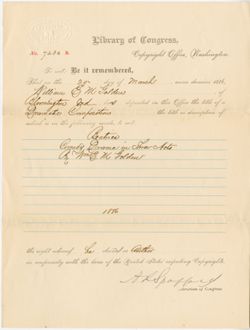 Library of Congress,
No. 7286 B.
Copyright Office, Washington
To wit: Be it remembered,
That on the 20 day of March anno domini 1886,
William E. M.
Bloomington Ind has deposited in this Office the title of a
Dramatic Composition the title or description of
which is in the following words, to wit:
Comedy Drama in Four Acts
By Wm E. M.
1886
the right whereof he claims as Author
in conformity with the laws of the United States respecting Copyrights.
A R Spofford
Librarian of Congress